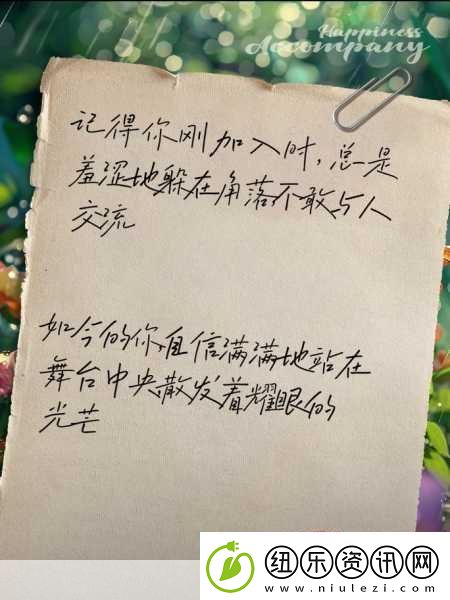 Happiness
Accompany
记得你刚加入时,总是
羞涩地躲在角落不敢与人
交流
如今的你自信满满地站在
舞台中央散发着耀眼的
光芒
纽乐资讯网
www.niulezi.com